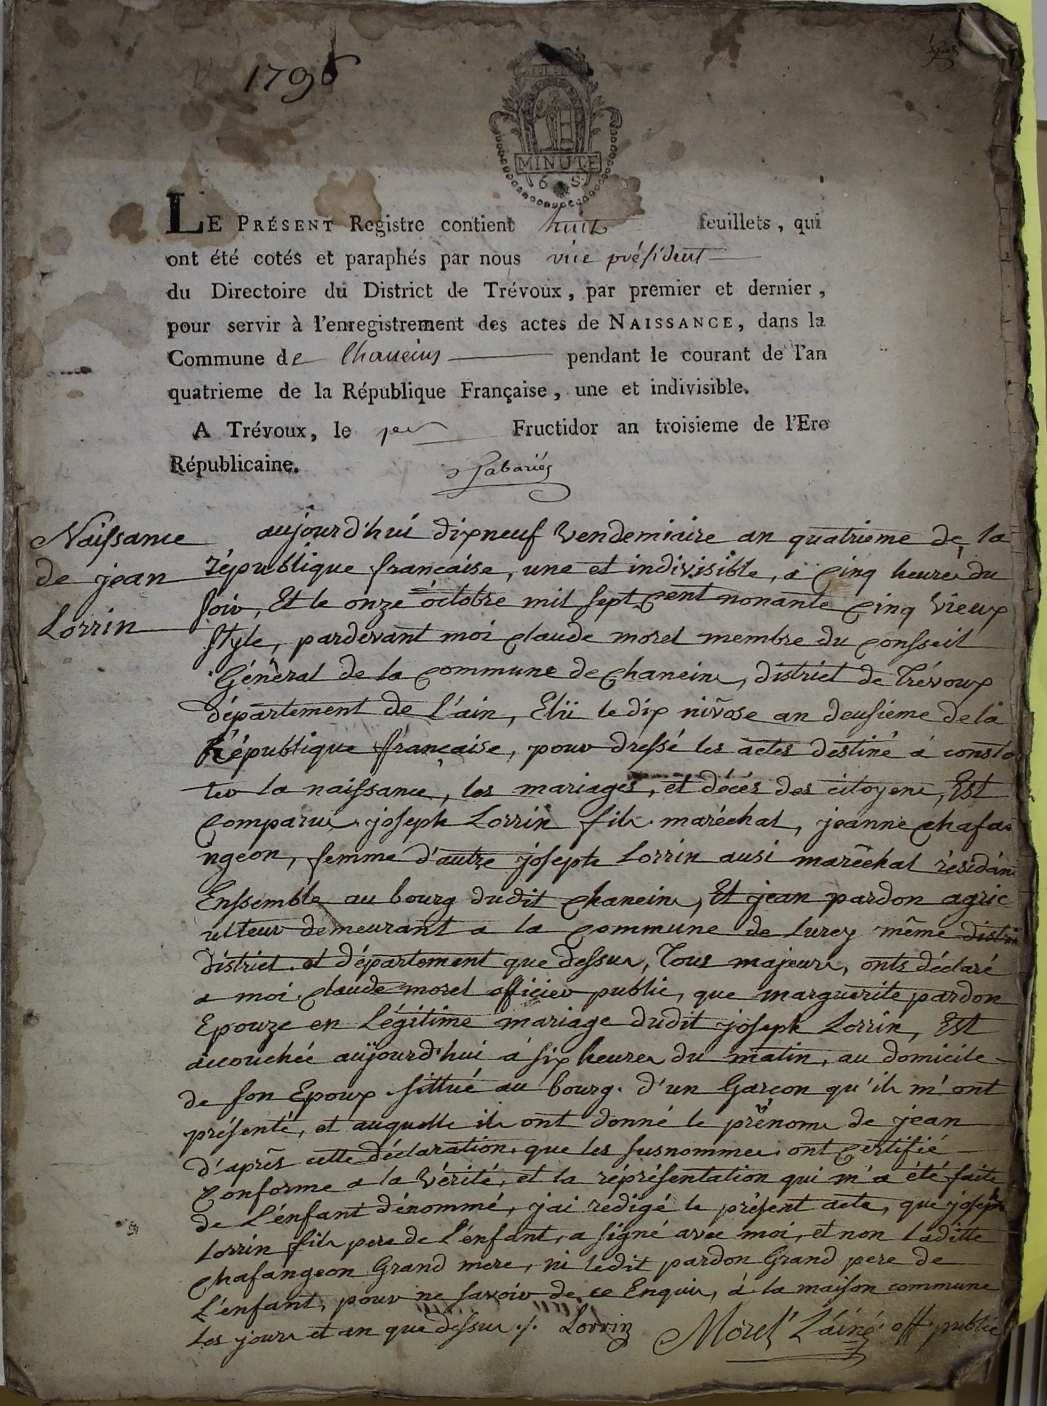 1796
MINUTE
LE PRÉSENT Registre contient huit feuillets, qui
ont été cotés et paraphés par nous vice président
du Directoire du District de Trévoux, par premier et dernier,
pour servir à l'enregistrement des actes de NAISSANCE, dans la
Commune de Chaneins pendant le courant de l'an
quatrieme de la République Française, une et indivisible.
A Trévoux, le 1er Fructidor an troisieme de l'Ere
Républicaine.
Naissance
de jean
Lorrin
aujourd'hui dixneuf Vendemiaire an quatrieme de la
république francaise, une et indivisible, a cinq heures du
soir, Et le onze octobre mil sept cent nonante cinq vieux
style, pardevant moi claude morel membre du conseil
Général de la commune de chaneins, district de Trévoux
département de l'ain, Elü le dix nivose an deusieme de la
République française, pour dressé les actes destiné a consta
ter la naissance, les mariages, et décés des citoyens, Est
comparus joseph Lorrin fils maréchal, jeanne chafa
ngeon, femme d'autre joseph Lorrin ausi maréchal résidan
Enssemble au bourg dudit chaneins, Et jean pardon agric
ulteur demeurant a la commune de Lurcy même distri
district et département que dessus, Tous majeurs, onts déclaré
a moi claude morel officier public, que marguerite pardon
Epouze en Légitime mariage dudit joseph Lorrin, Est
accouchée aujourd'hui a six heures du matin, au domicile
de son Epoux sittué au bourg d'un Garcon qu'ils m'ont
présenté, et auquelle ils ont donné le prénoms de jean
d'aprés cette déclaration, que les susnommes ont certifié
conforme a la vérité, et la réprésentation qui m'a été faite
de L'énfant dénommé, j'ai redigé le présent acte, que joseph
Lorrin fils pere de L'enfant, a signé avec moi, et non Laditte
chafangeon Grand mere, ni ledit pardon Grand pere de
L'enfant, pour ne savoir de ce Enquis, à la maison commune
Les jours et an que dessus Lorrin Morel L'áiné off public